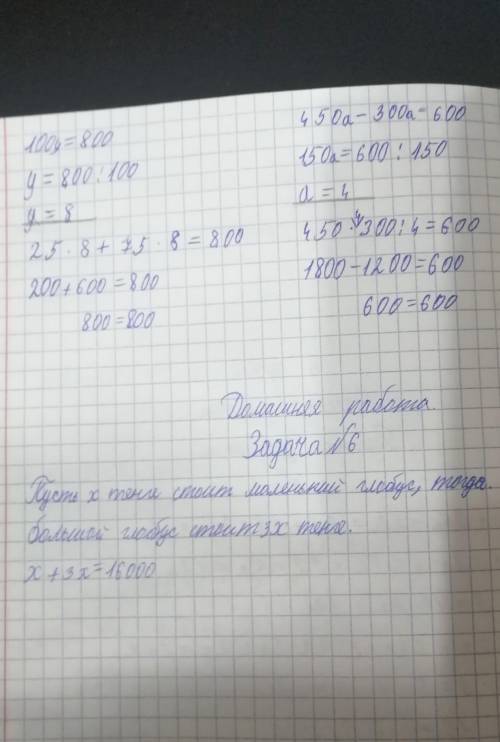 100y=800
y=800:100
y=8
25·8+75·8=800
200+600=800
800=800
450a-300a=600
150a=600:150
a=4
450·300:4=600
1800-1200=600
600=600
Домашняя работа.
Задача №6
Пусть х тенге стоит маленький глобус, тогда.
большой глобус стоит 3х тенге.
х+3х=16000